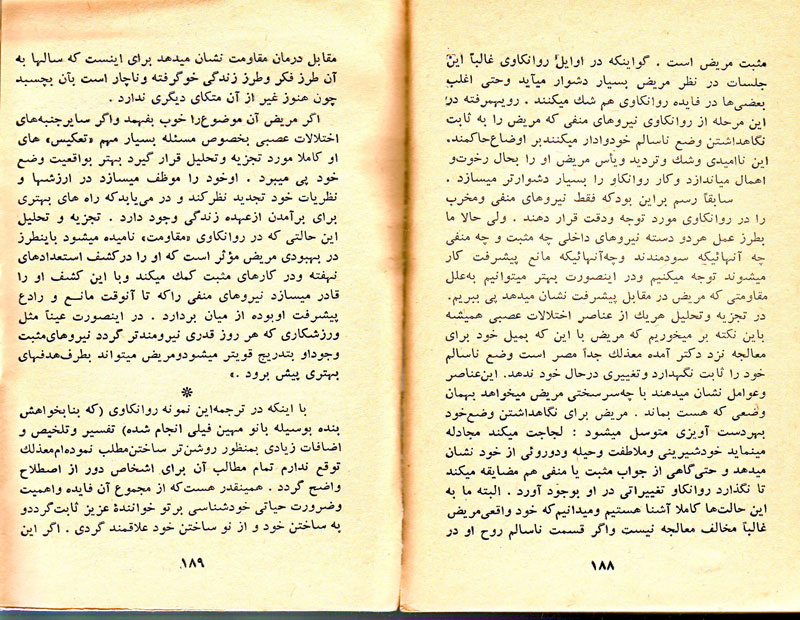 مثبت مریض است . گواینکه در اوایل روانکاوی غالباً این
جلسات در نظر مریض بسیار دشوار میآید وحتی اغلب
بعضی‌ها در فایده روانکاوی هم شك میکنند . رویهمرفته در
این مرحله از روانکاوی نیروهای منفی که مریض را به ثابت
نگاهداشتن وضع ناسالم خودوادار میکنندبر اوضاع‌حاکمند.
این ناامیدی وشك وتردید ویأس مریض او را بحال رخوت‌و
اهمال میاندازد وکار روانکاو را بسیار دشوارتر میسازد .
سابقاً رسم براین بودکه فقط نیروهای منفی ومخرب
را در روانکاوی مورد توجه ودقت قرار دهند . ولی حالا ما
بطرز عمل هردو دسته نیروهای داخلی چه مثبت و چه منفی
چه آنهائیکه سودمندند وچه‌آنهائیکه مانع پیشرفت کار
میشوند توجه میکنیم ودر اینصورت بهتر میتوانیم به‌علل
مقاومتی که مریض در مقابل پیشرفت نشان میدهد پی ببریم.
در تجزیه وتحلیل هریك از عناصر اختلالات عصبی همیشه
باین نکته بر میخوریم که مریض با این که بمیل خود برای
معالجه نزد دکتر آمده معذلك جداً مصر است وضع ناسالم
خود را ثابت نگهدارد وتغییری درحال خود ندهد. این‌عناصر
وعوامل نشان میدهند با چه‌سرسختی مریض میخواهد بهمان
وضعی که هست بماند . مریض برای نگاهداشتن وضع‌خود
بهردست آویزی متوسل میشود : لجاجت میکند مجادله
مینماید خودشیرینی وملاطفت وحیله ودوروئی از خود نشان
میدهد و حتی‌گاهی از جواب مثبت یا منفی هم مضایقه میکند
تا نگذارد روانکاو تغییراتی در او بوجود آورد . البته ما به
این حالت‌ها کاملا آشنا هستیم ومیدانیم‌که خود واقعی‌مریض
غالباً مخالف معالجه نیست واگر قسمت ناسالم روح او در
۱۸۸
مقابل درمان مقاومت نشان میدهد برای اینست که سالها به
آن طرز فکر وطرز زندگی خوگرفته وناچار است بآن بچسبد
چون هنوز غیر از آن متکای دیگری ندارد .
اگر مریض آن موضوع‌را خوب بفهمد واگر سایرجنبه‌های
اختلالات عصبی بخصوص مسئله بسیار مهم «تعکیس» های
او کاملا مورد تجزیه وتحلیل قرار گیرد بهتر بواقعیت وضع
خود پی میبرد . اوخود را موظف میسازد در ارزشها و
نظریات خود تجدید نظرکند و در می‌یابدکه راه های بهتری
برای برآمدن ازعهده زندگی وجود دارد . تجزیه و تحلیل
این حالتی که در روانکاوی «مقاومت» نامیده میشود باینطرز
در بهبودی مریض مؤثر است که او را درکشف استعدادهای
نهفته ودر کارهای مثبت کمك میکند وبا این کشف او را
قادر میسازد نیروهای منفی راکه تا آنوقت مانع و رادع
پیشرفت اوبوده از میان بردارد . در اینصورت عیناً مثل
ورزشکاری که هر روز قدری نیرومندتر گردد نیروهای‌مثبت
وجوداو بتدریج قویتر میشودومریض میتواند بطرف‌هدفهای
بهتری پیش برود .»
*
با اینکه در ترجمه‌این نمونه روانکاوی (که بنابخواهش
بنده بوسیله بانو مهین فیلی انجام شده) تفسیر وتلخیص و
اضافات زیادی بمنظور روشن‌تر ساختن‌مطلب نموده‌ام‌معذلك
توقع ندارم تمام مطالب آن برای اشخاص دور از اصطلاح
واضح گردد . همینقدر هست‌که از مجموع آن فایده واهمیت
وضرورت حیاتی خودشناسی برتو خوانندهٔ عزیز ثابت‌گرددو
به ساختن خود و از نو ساختن خود علاقمند گردی . اگر این
۱۸۹